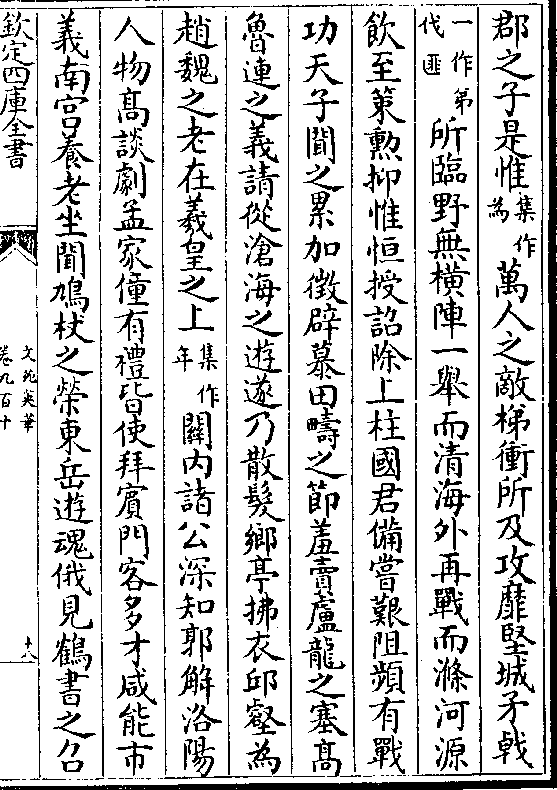 郡之子是惟集作為萬人之敵梯衝所及攻靡堅城矛㦸
一作第代匪所臨野無橫陣一舉而清海外再戰而滌河源
飲至策勲抑惟恒授詔除上柱國君備嘗艱阻頻有戰
功天子聞之累加徵辟慕田疇之節羞賣盧龍之塞髙
魯連之義請從滄海之遊遂乃散髮鄉亭拂衣邱壑為
趙魏之老在羲皇之上集作年關内諸公深知郭解洛陽
人物髙談劇孟家僮有禮皆使拜賓門客多才咸能市
義南宫養老坐聞鳩杖之榮東岳遊魂俄見鶴書之召
欽定四庫全書
文苑英華
卷九百十
十八